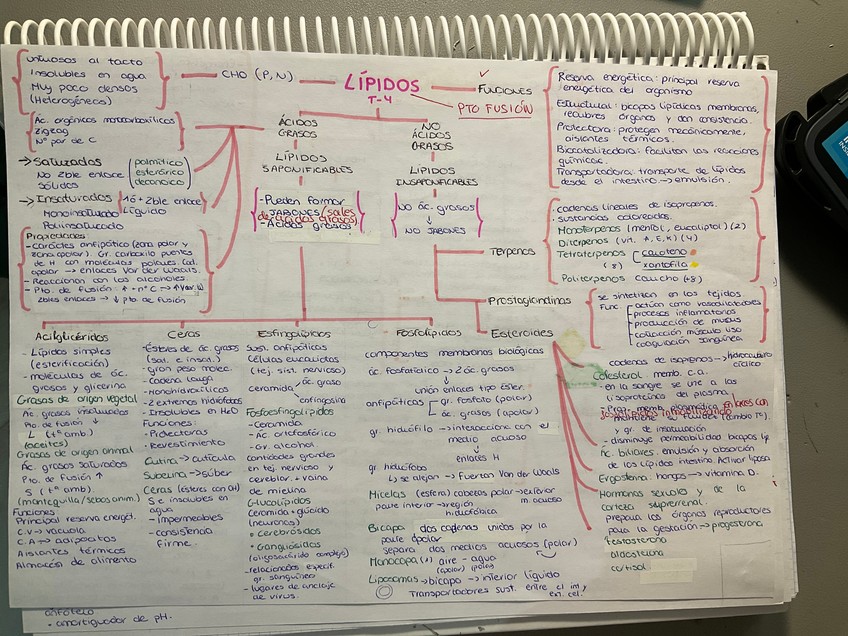 untuosos al tacto
Insolubles en agua
Muy poco densos
(Heterogéneos)
CHO (P, N)
LÍPIDOS
T-4
PTO FUSIÓN
FUNCIONES
Reserva energética: principal reserva
energética del organismo
Estructural: bicapas lipídicas membranas,
recubres órganos y dan consistencia.
Protectora: protegen mecánicamente,
aislantes térmicos.
Biocatalizadora: facilitan las reacciones
químicas.
Transportadora: transporte de lípidos
desde el intestino → emulsión.
Ác. orgánicos monocarboxílicos
Zigzag
Nº par de C
→ Saturados
No 2ble enlace
sólidos
palmítico
esteárico
decanoico
→ Insaturados
Monoinsaturado
Poliinsaturado
1 ó + 2ble enlace
Líquido
Propiedades
- Carácter anfipático (zona polar y
zona apolar). Gr. carboxilo puentes
de H con moléculas polares. Cad.
apolar → enlaces Van der Waals.
- Reaccionan con los alcoholes.
- Pto. de fusión: ↑ + nº C → ↑ Van W
2bles enlaces → ↓ pto de fusión
ÁCIDOS
GRASOS
LÍPIDOS
SAPONIFICABLES
- Pueden formar
JABONES (sales
de ácidos grasos)
- Ácidos grasos
NO
ÁCIDOS
GRASOS
LÍPIDOS
INSAPONIFICABLES
NO ác. grasos
↓
NO JABONES
Terpenos
· cadenas lineales de isoprenos.
· sustancias coloreadas.
Monoterpenos (mentol, eucaliptol) (2)
Diterpenos (vit. A, E, K) (4)
Tetraterpenos
(8)
caroteno
xantofila
Politerpenos caucho (+8)
Prostaglandinas
se sintetizan en los tejidos
Func
actúan como vasodilatadores
procesos inflamatorios
producción de mucus
contracción músculo liso
coagulación sanguínea
Esteroides
cadenas de isoprenos → hidrocarburo
cíclico
Colesterol: memb. c.a.
- en la sangre se une a las
lipoproteínas del plasma.
- Prop. memb. plasmática enlaces con
mantiene su fluidez (cambio Tª)
y gr. de insaturación
- disminuye permeabilidad bicapas lip
Ác. biliares: emulsión y absorción
de los Lípidos intestino. Activar lipasa
Ergosterina: hongos → vitamina D.
Hormonas sexuales y de la
corteza suprarrenal.
prepara los órganos reproductores
para la gestación → progesterona
testosterona
aldosterona
cortisol
Acilglicéridos
- Lípidos simples
(esterificación)
- moléculas de ác.
grasos y glicerina
Grasas de origen vegetal
Ác. grasos insaturados
Pto. de fusión ↓
L (tª amb.)
(aceites)
Grasas de origen animal
Ác. grasos saturados
Pto. de fusión ↑
S (tª amb)
(mantequilla/sebos anim.)
Funciones
Principal reserva energét.
C.V → vacuola
C.A → adipocitos
Aislantes térmicos
Almacén de alimento
Ceras
- Ésteres de ác. grasos
(sat. e insat.)
- gran peso molec.
- Cadena larga
- Monohidroxílicos
- 2 extremos hidrófobos
- Insolubles en H2O
Funciones:
- Protectoras
- Revestimiento
Cutina → cutícula
Suberina → súber
Ceras (ésteres con OH)
S e insolubles en
agua
- impermeables
- consistencia
firme.
Esfingolípidos
Sust. anfipáticas
Células eucariotas
(tej. sist. nervioso)
ceramida
ác. graso
esfingosina
Fosfoesfingolípidos
- Ceramida
- Ác ortofosfórico
- Gr. alcohol
cantidades grandes
en tej. nervioso y
cerebral. + vaina
de mielina
Glucolípidos
Ceramida + glúcido
(neuronas)
• cerebrósidos
• Gangliósidos
(oligosacárido complejo)
- relacionados especif.
gr. sanguíneo
- lugares de anclaje
de virus.
Fosfolípidos
componentes membranas biológicas
ác. fosfatídico → 2 ác. grasos
↓
unión enlaces tipo éster
anfipáticos
gr. fosfato (polar)
ác. grasos (apolar)
gr. hidrófilo → interacciona con el
medio acuoso
↓
enlaces H
gr. hidrófobo
↳ se alejan → Fuerzas Van der Waals
Micelas (esfera) cabezas polar → exterior
parte interior → región m. acuoso
hidrofóbica
Bicapa dos cadenas unidas por la
parte apolar
separa dos medios acuosos (polar)
Monocapa (1) aire - agua
(apolar) (polar)
Liposomas → bicapa → interior líquido
Transportadores sust. entre el int y
ext. cel.
- amortiguador de pH.